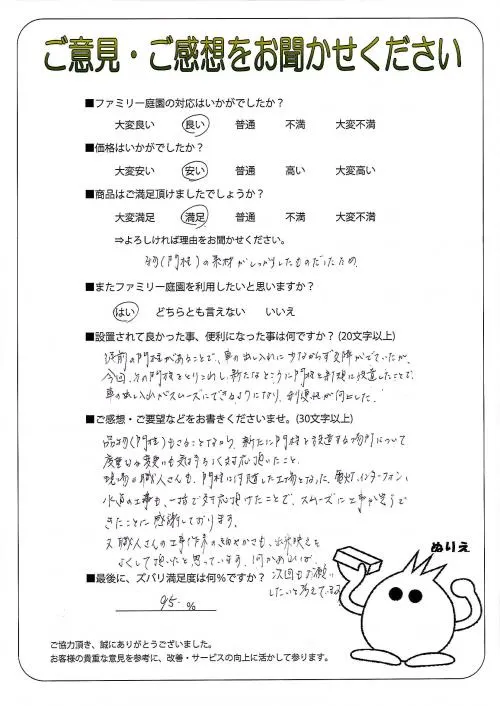 ご意見・ご感想をお聞かせください
■ファミリー庭園の対応はいかがでしたか？
大変良い 良い 普通 不満 大変不満
■価格はいかがでしたか？
大変安い 安い 普通 高い 大変高い
■商品はご満足頂けましたでしょうか？
大変満足 満足 普通 不満 大変不満
⇒よろしければ理由をお聞かせください。
物(門柱)の素材がしっかりしたものだったため
■またファミリー庭園を利用したいと思いますか？
はい どちらとも言えない いいえ
■設置されて良かった事、便利になった事は何ですか？(20文字以上)
以前の門柱があることで、車の出し入れに少なからず支障がでていたが、
今回、その門柱をとりこわし、新たなところに門柱を新規に設置したことで、
車の出し入れがスムーズにできるようになり、利便性が向上した。
■ご感想・ご要望などをお書きくださいませ。(30文字以上)
品物(門柱)もさることながら、新たに門柱を設置する場所について
度重なる変更にも気持ちよく対応頂いたこと。
現場の職人さんも、門柱に付随した工事となった、電灯、インターフォン、
水道の工事も、一括で対応頂けたことで、スムーズに工事が完了で
きたことに感謝しております。
又職人さんの工事作業の細やかさも、出来映えを
よくして頂いたと思っています。何かあれば、
次回もお願い
したいと考えている。
■最後に、ズバリ満足度は何%ですか？
95 %
ぬりえ
ご協力頂き、誠にありがとうございました。
お客様の貴重な意見を参考に、改善・サービスの向上に活かして参ります。